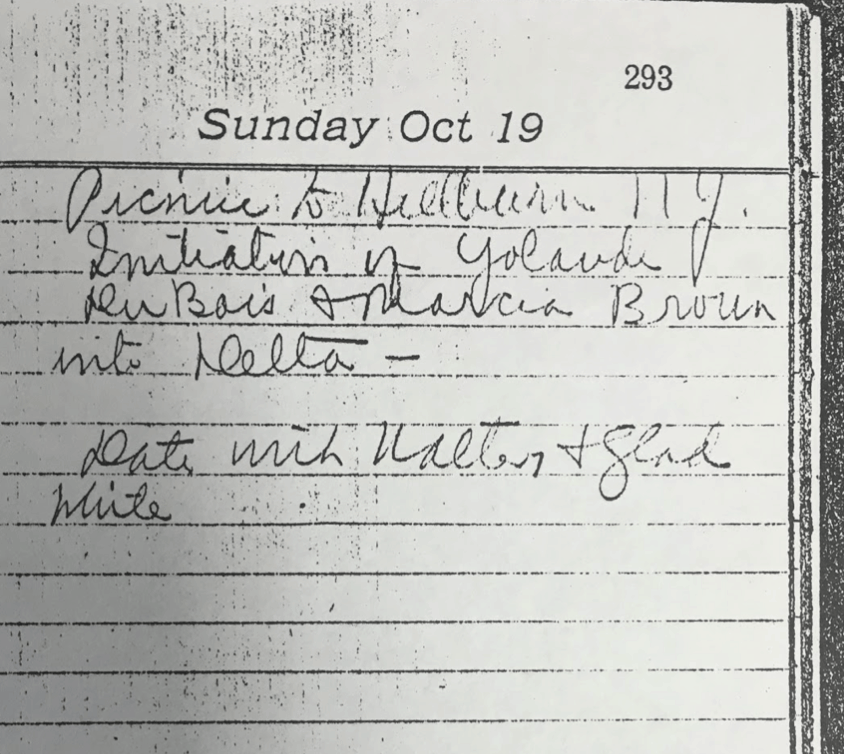 293
Sunday Oct 19
Picnic to Hillburn N Y.
Initiation of Yolande
DuBois & Marcia Brown
into Delta –
Date with Walter, & Glad
White